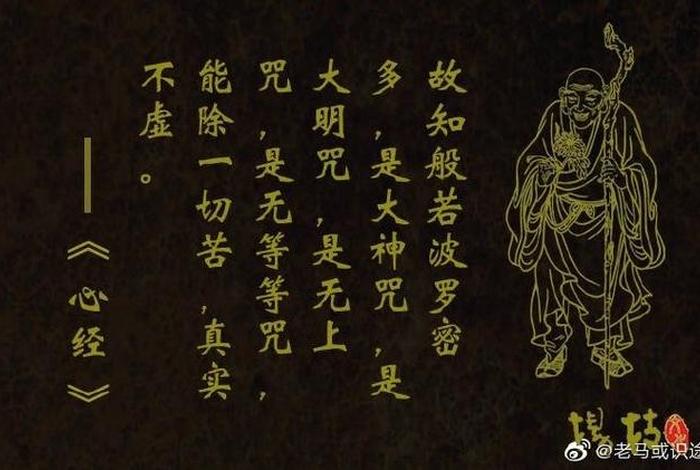 故知般若波罗密
多，是大神咒，是
大明咒，是无上
咒，是无等等咒，
能除一切苦，真实
不虚。
——《心经》
@老马或识途